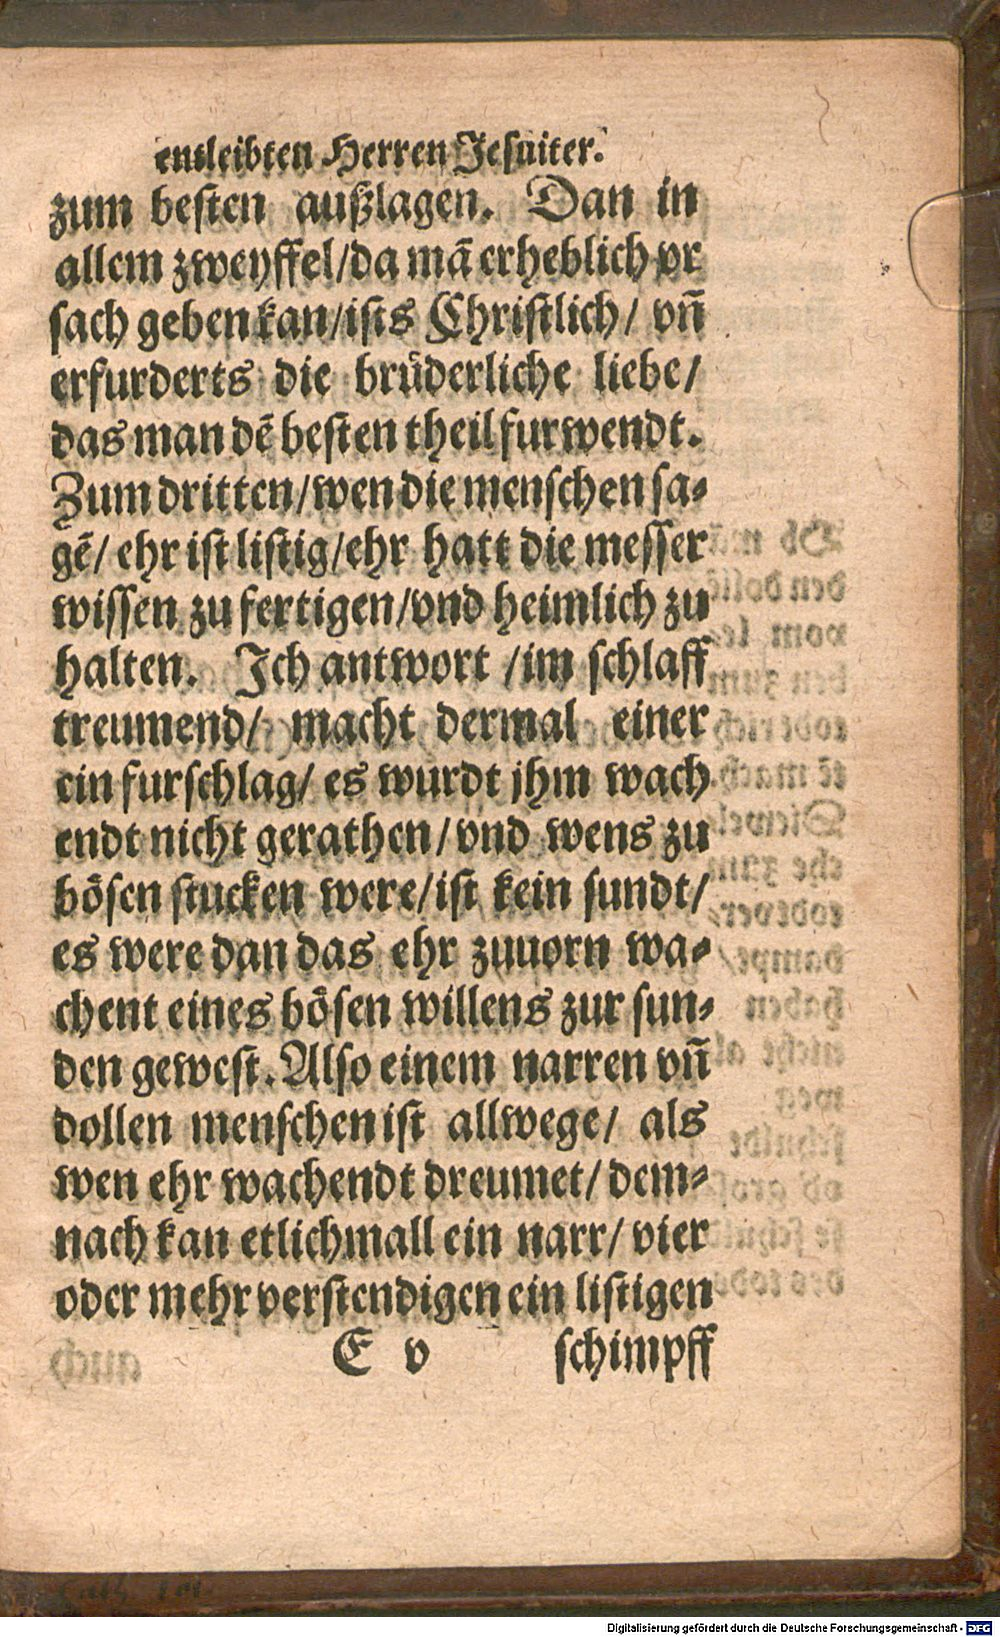 entleibten Herren Jesuiter.
zum besten außlagen. Dan in
allem zweyffel/da mã erheblich vr
sach geben kan/ists Christlich/ vñ
erfurderts die brüderliche liebe/
das man dẽ besten theil furwendt.
Zum dritten/wen die menschen sa-
gẽ/ ehr ist listig/ehr hatt die messer
wissen zu fertigen/vnd heimlich zu
halten. Ich antwort /im schlaff
treumend/ macht dermal einer
ein furschlag/ es wurdt jhm wach
endt nicht gerathen/vnd wens zu
bösen stucken were/ist kein sundt/
es were dan das ehr zuuorn wa-
chent eines bösen willens zur sun-
den gewest. Also einem narren vñ
dollen menschen ist allwege/ als
wen ehr wachendt dreumet/ dem-
nach kan etlichmall ein narr/ vier
oder mehr verstendigen ein listigen
E v schimpff
Digitalisierung gefördert durch die Deutsche Forschungsgemeinschaft - DFG